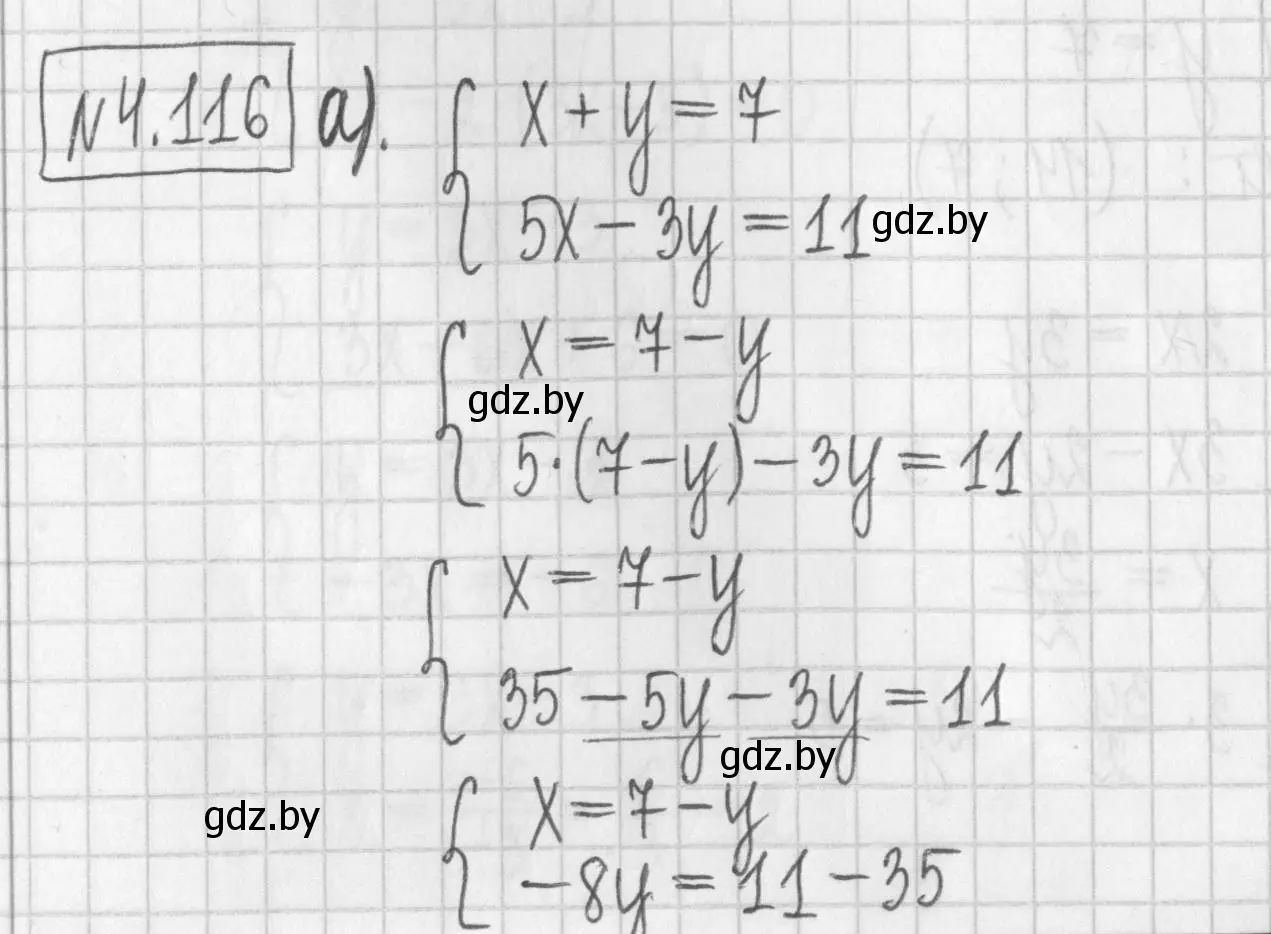 №4.116 а). { x + y = 7
5x - 3y = 11 gdz.by
{ x = 7 - y
gdz.by
5·(7-y) - 3y = 11
{ x = 7 - y
35 - 5y - 3y = 11
gdz.by
gdz.by
{ x = 7 - y
-8y = 11 - 35